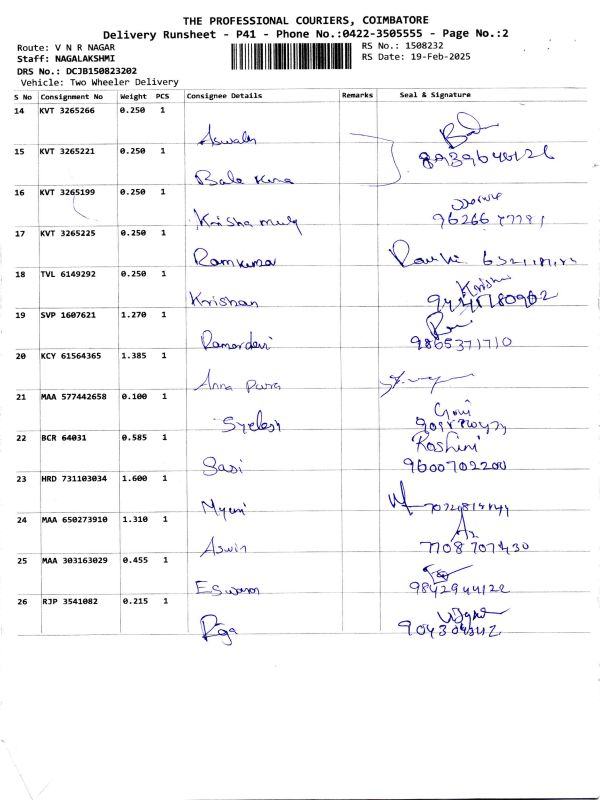 THE PROFESSIONAL COURIERS, COIMBATORE
Delivery Runsheet - P41 - Phone No.:0422-3505555 - Page No.:2
Route: V N R NAGAR RS No.: 1508232
Staff: NAGALAKSHMI RS Date: 19-Feb-2025
DRS No.: DCJB150823202
Vehicle: Two Wheeler Delivery
S No Consignment No Weight PCS Consignee Details Remarks Seal & Signature
14 KVT 3265266 0.250 1
15 KVT 3265221 0.250 1
Bala Kuna
16 KVT 3265199 0.250 1
17 KVT 3265225 0.250 1
Ramkumar
18 TVL 6149292 0.250 1
Krishan
19 SVP 1607621 1.270 1
9865371710
20 KCY 61564365 1.385 1
Anna Pura
21 MAA 577442658 0.100 1
22 BCR 64031 0.585 1 Roshini
Sasi 9600702200
23 HRD 731103034 1.600 1
24 MAA 650273910 1.310 1
Aswin 7708707430
25 MAA 303163029 0.455 1
Eswaran 9842944122
26 RJP 3541082 0.215 1